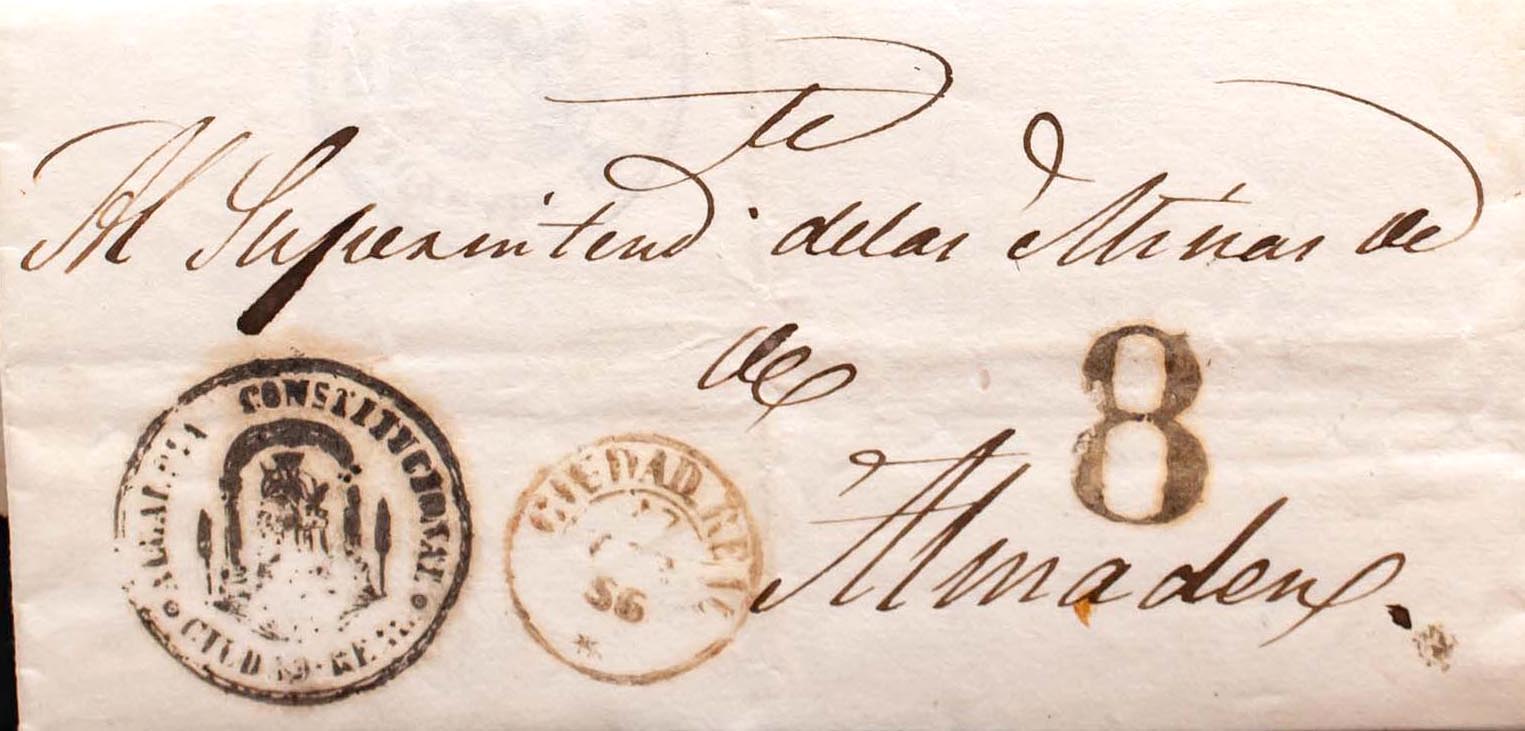 Al Superintend.te delas Minas de
de
Almaden.
8
ALCALDIA CONSTITUCIONAL
CIUDAD-REAL
CIUDAD REAL
17
56